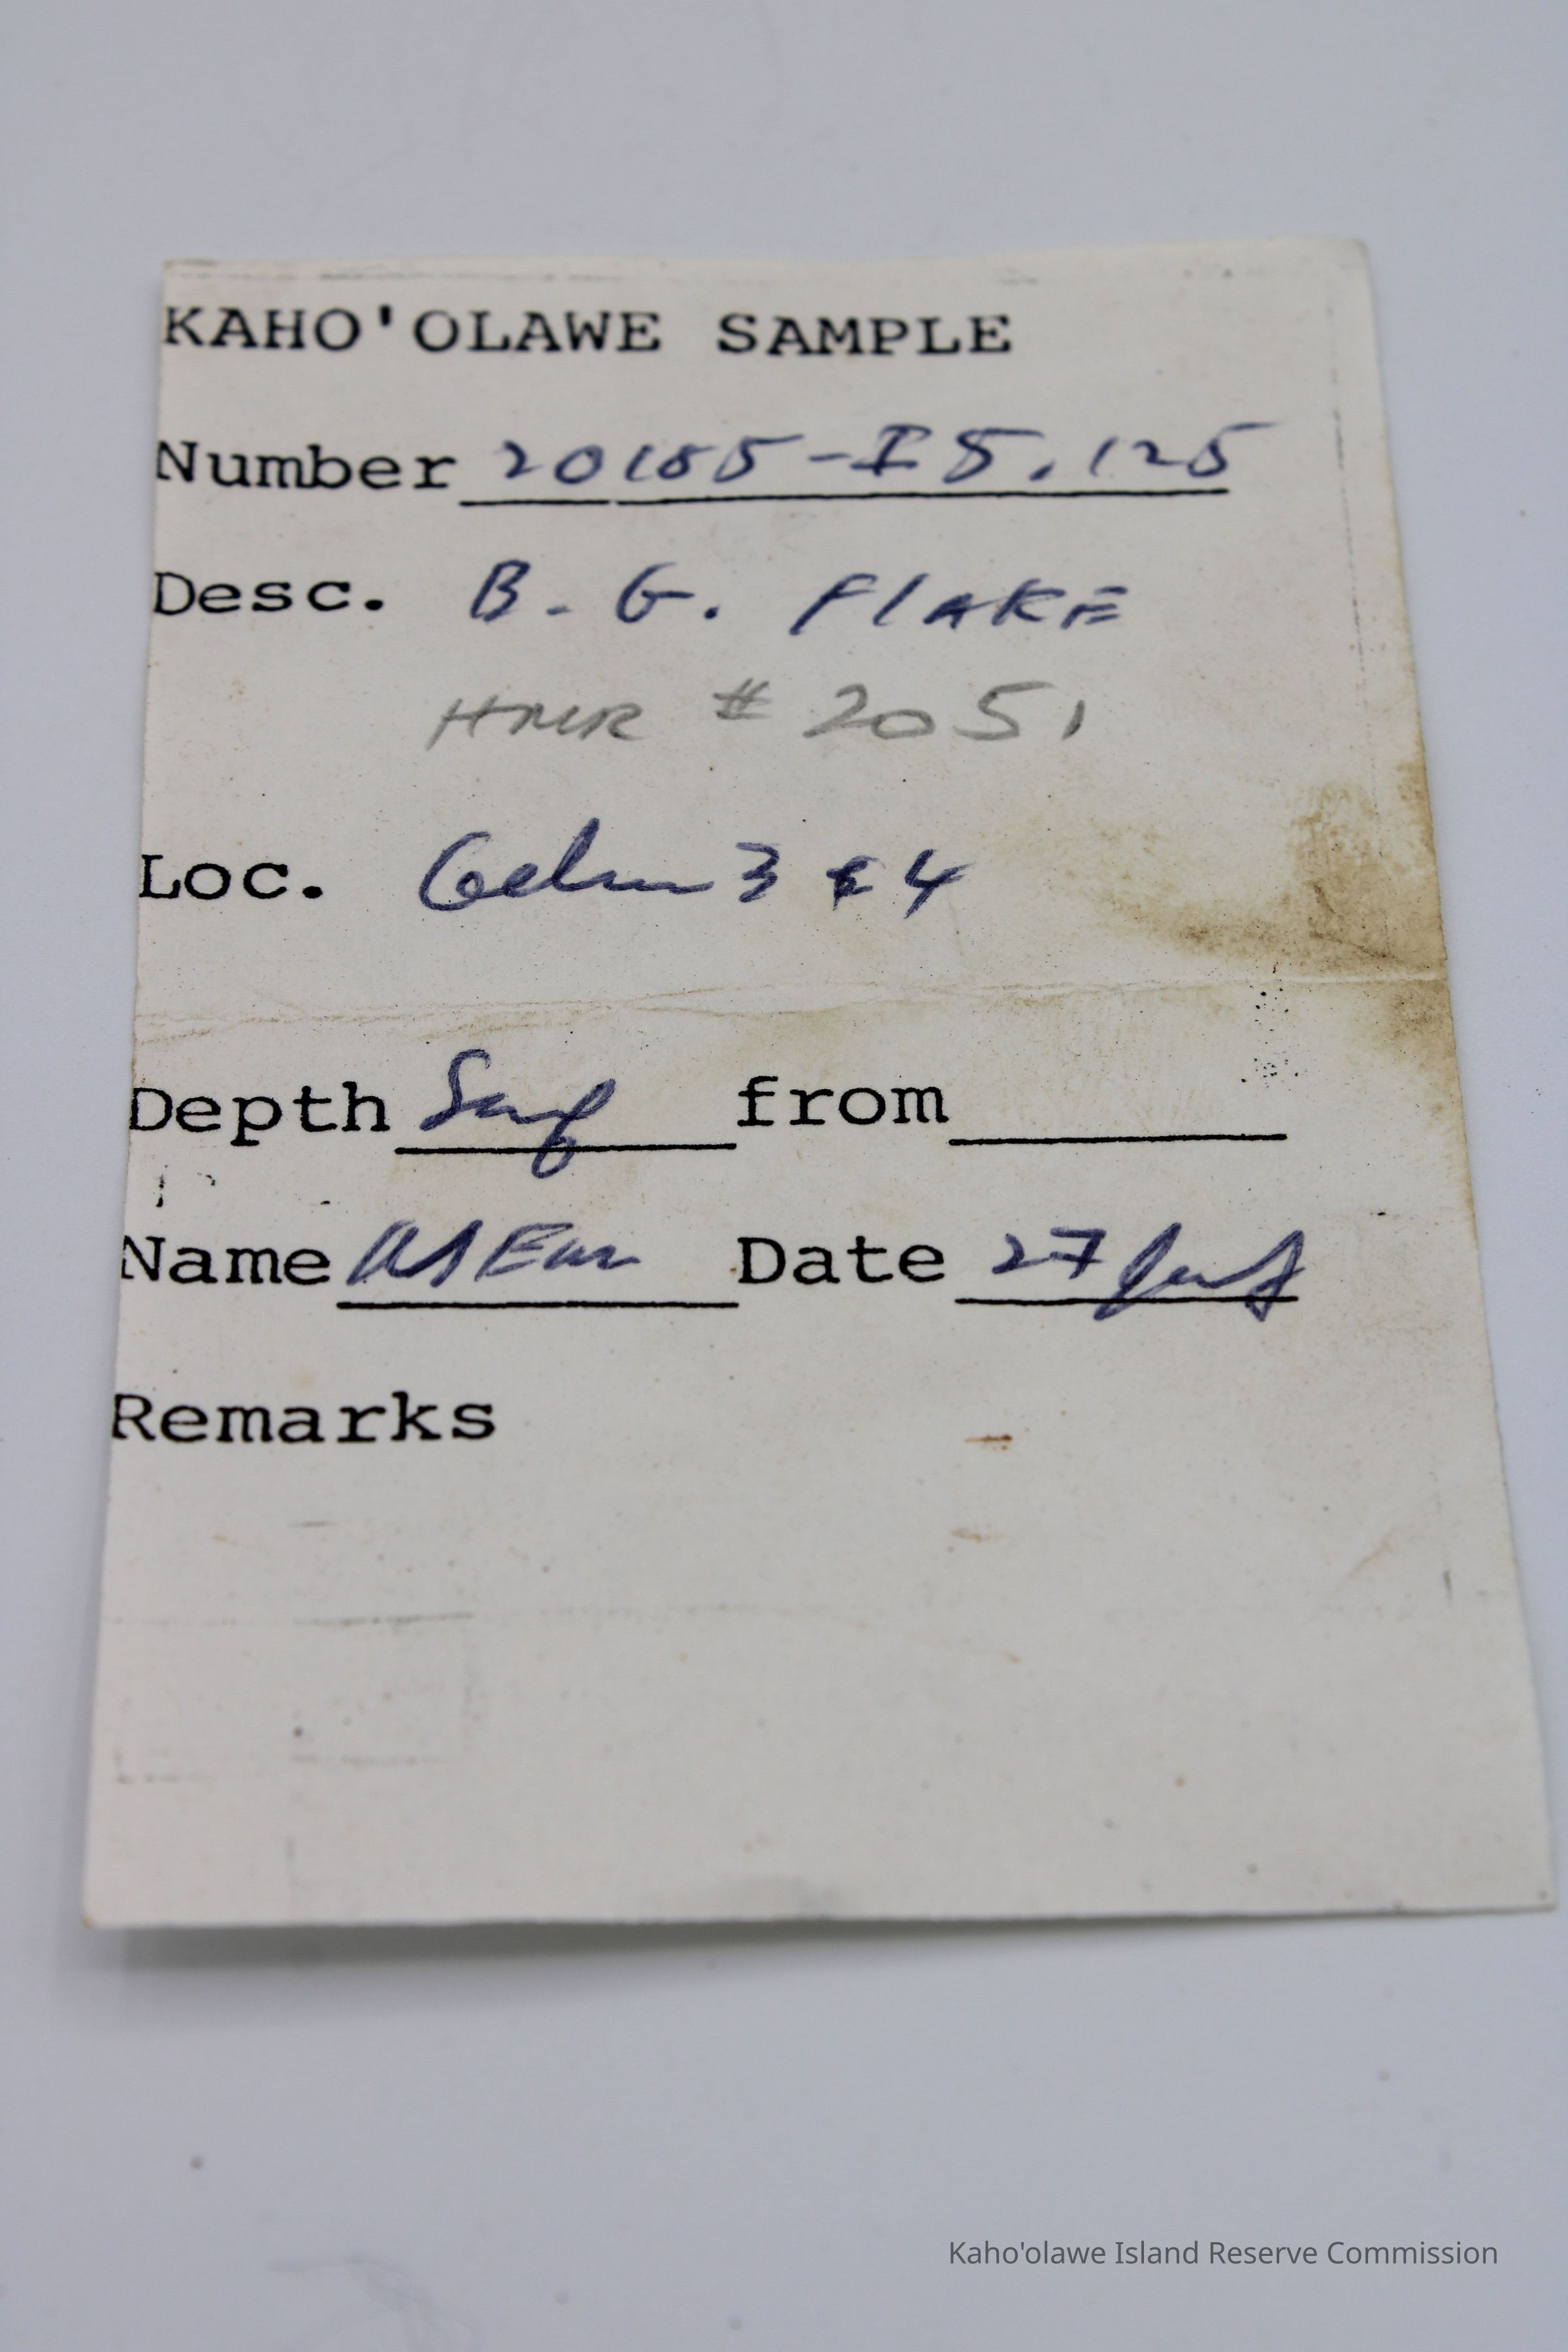 KAHO'OLAWE SAMPLE
Number
Desc. B. G. FlAKE
HMR # 2051
Loc. 3 & 4
Depth Surf from
Name Date 27
Remarks
Kaho'olawe Island Reserve Commission